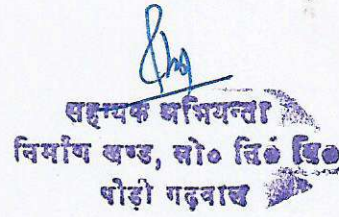 सहायक अभियन्ता
निर्माण खण्ड, लो० नि० वि०
पौड़ी गढ़वाल